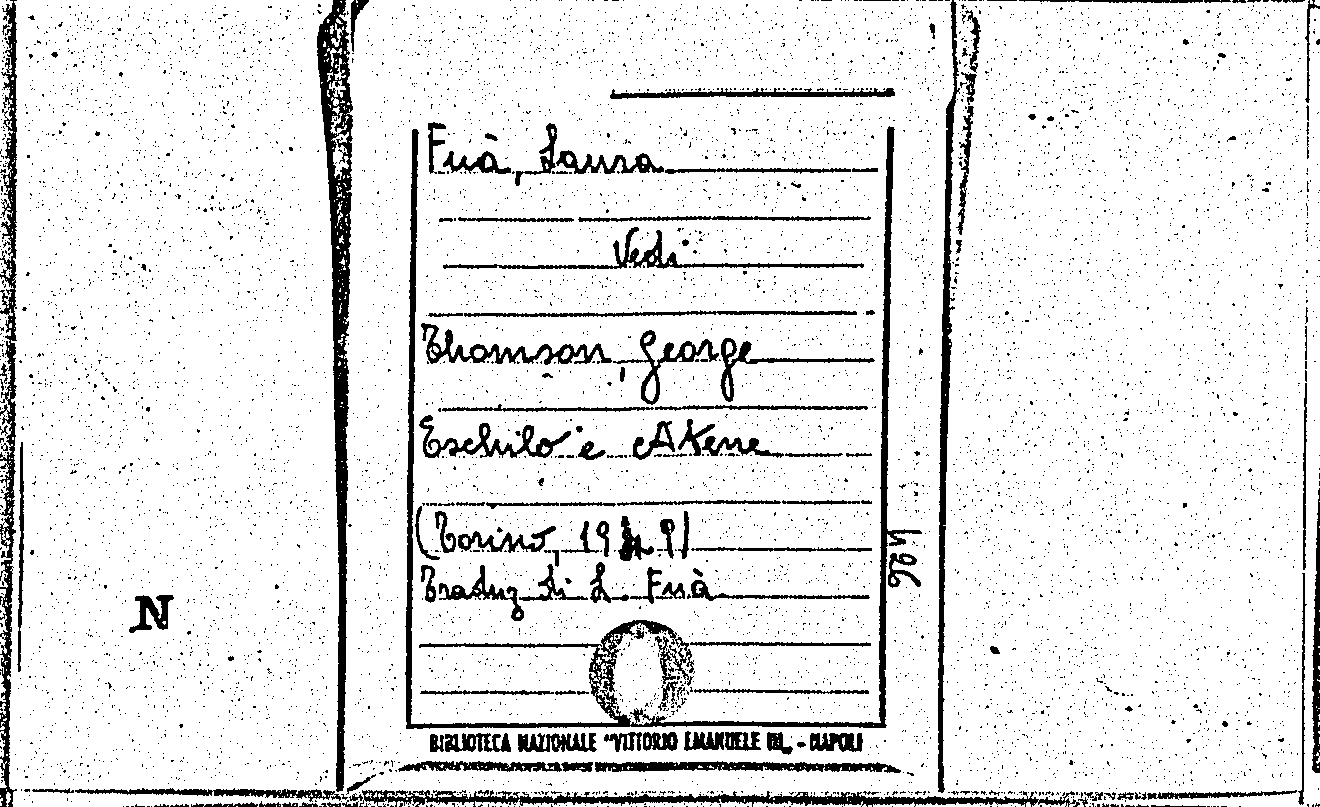 Fuà, Laura
Vedi
Thomson, George
Eschilo e Atene
(Torino, 1949)
Traduz di L. Fuà
N
BIBLIOTECA NAZIONALE "VITTORIO EMANUELE III„ - NAPOLI